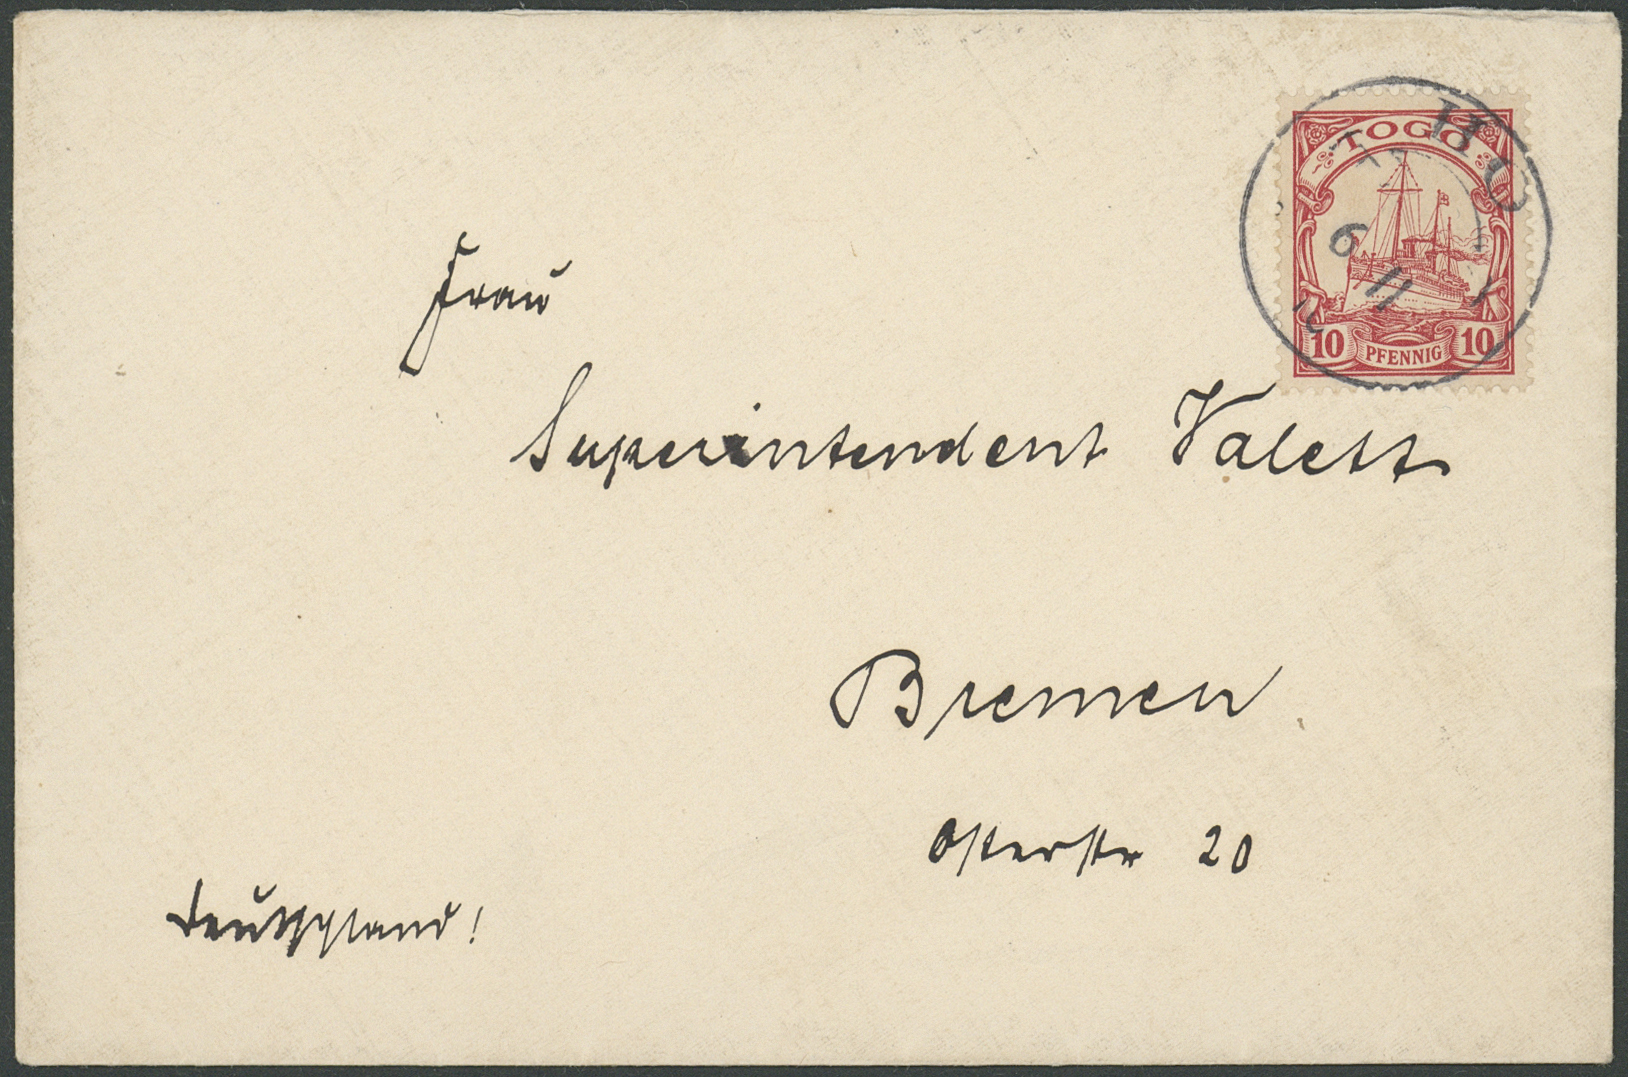 TOGO
HO
6 11
10 PFENNIG 10
Frau
Superintendent Valett
Bremen
Osterstr 20
Deutschland!